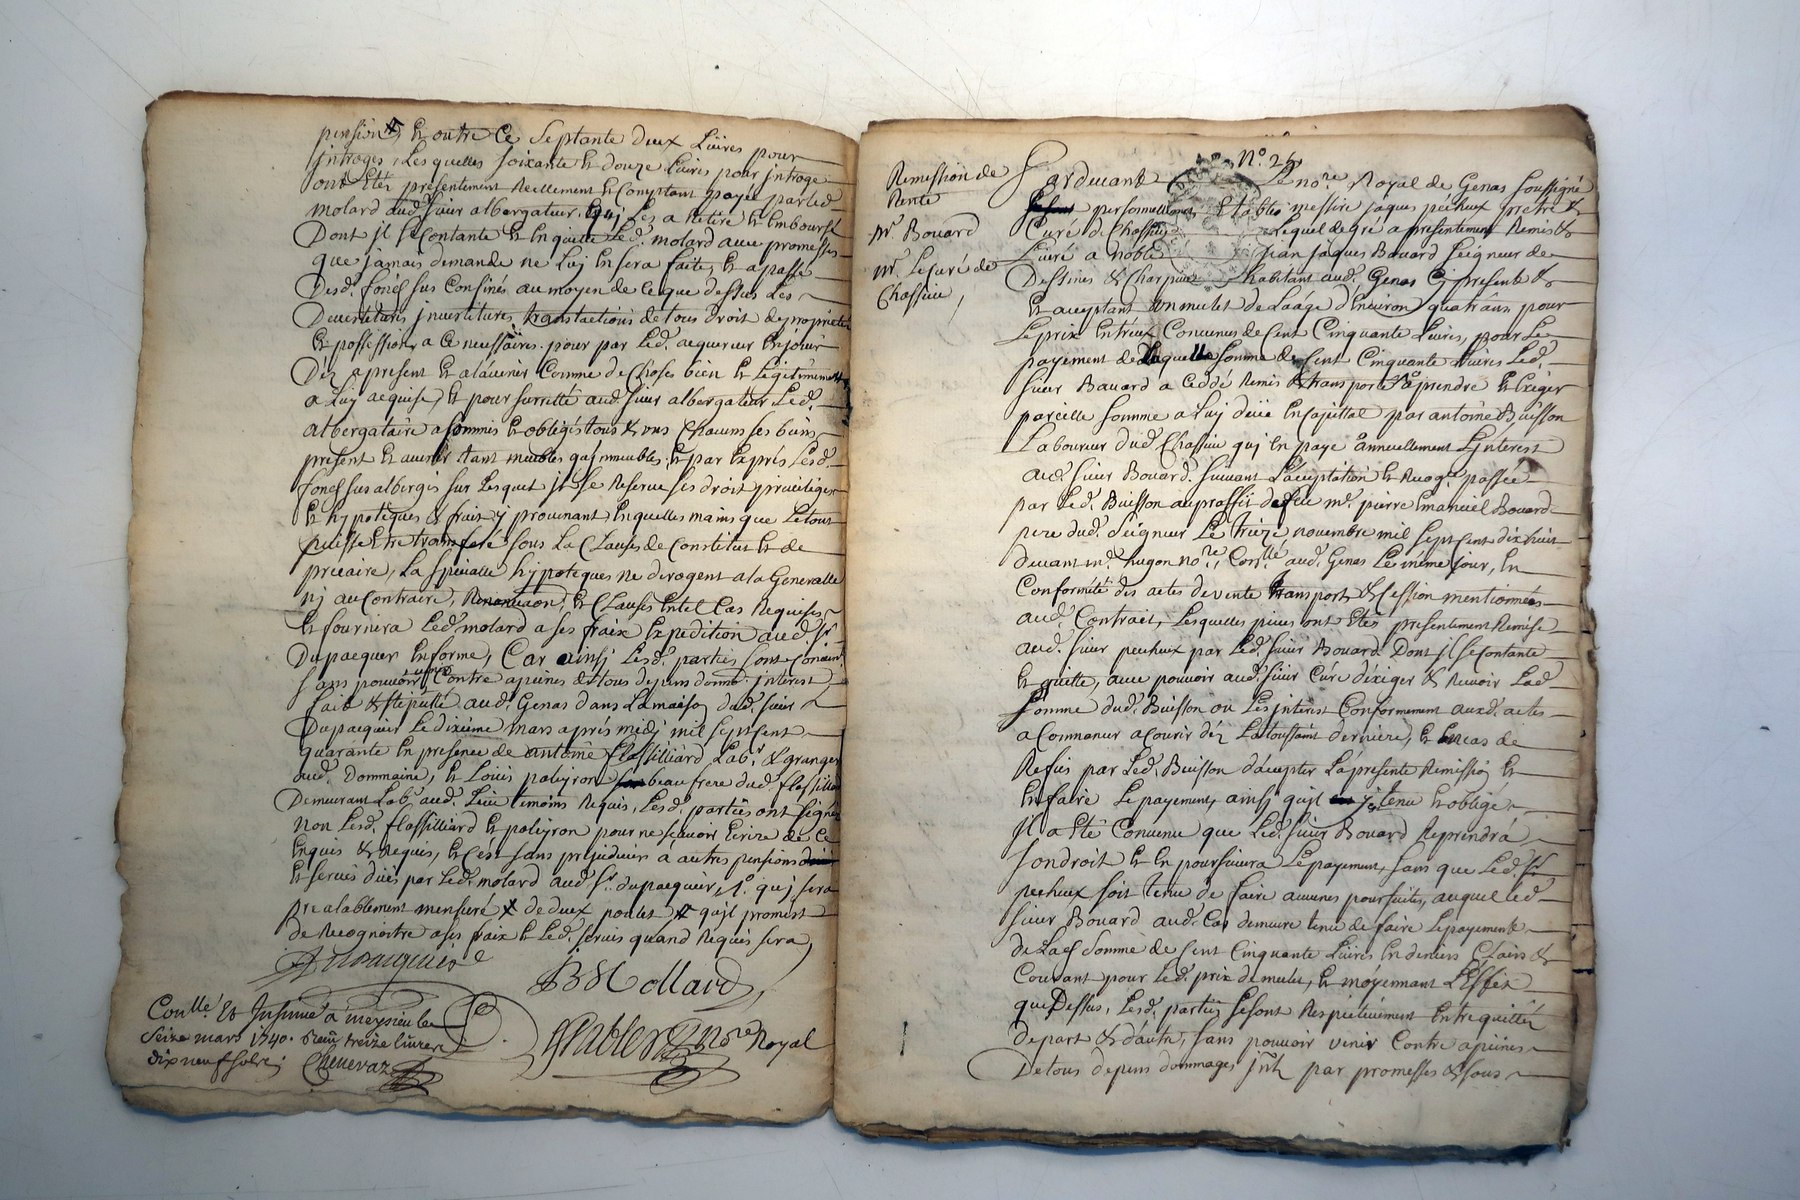 pension, & outre ce septante deux Livres pour
introges, Lesquelles soixante & douze Livres pour introge
ont Etés presentement Reellement & Comptant payée par led.
molard aud. sieur albergateur. quj Les a Retiré & Emboursé
Dont jl se Contante & En quitte Led. molard avec promesses
que jamais demande ne Luj En sera faite, & a passé
Desd. fonds sus Confinés au moyen de ce que dessus Les
Devestitures investitures, translations de tous droit de proprieté
& possession a ce necessaires pour par Led. acquereur En jouir
Dez a present & a lavenir Comme de Choses bien & Legitimement
a Luj acquise, & pour surretté aud. sieur albergateur Led.
albergataire a sommis & obligés tous & uns Chacuns ses biens
present & avenir tant meubles qu'jmmeubles & par Exprés Lesd.
fonds sus albergés sur Lesquet jl se Reserve ses droit privileges
& hypoteques & fruit y provenant, En quelles mains que Le tout
puisse Etre transferé sous La Clauses de Constitut & de
precaire, La specialle hypoteques ne derogent a la Generalle
nj au Contraire, & Clauses En tel Cas Requises
& fournira Led. molard a ses fraix Expedition aud. sr.
Dupacquer En forme, Car ainsj Lesd. parties sont Convenu
sans pouvoir Contre a peines de tous depens domm. interest
fait & stipullé aud. Genas dans La maison dud. sieur
Dupacquier Le dixiéme mars aprés midj mil sept cent
quarante En presence de antoine flassilliard Lab. & granger
aud. Dommaine, & Loüis paleyron beau frere dud. flassilliard
Demeurant Lab. aud. Lieu temoins Requis, Lesd. parties ont signé
non Lesd. flassilliard & paleyron pour ne sçavoir Ecrire de ce
Enquis & Requis, & C'est sans prejudicier a autres pensions
& servis dües par Led. molard aud. sr. dupacquier, quj sera
prealablement mensuré de deux poulet qu'jl promet
de Recognoitre a ses fraix & Led. servis quand Requis sera,
B Mollard
nore Royal
Conllé Et Insinué a meysieu le
seize mars 1740. Reçu treize livres
dix neuf sols
Chenevaz
Remission de
Rente
Mr Bouard
Mr. Le Curé de
Chassieu,
No. 26
Pardevant Le nore. Royal de Genas soussigné
personnellement Etablis messire jaques pecheux pretre &
Curé de Chassieu Lequel de gré a presentement Remis &
Livré a noble jean jaques Bouard seigneur de
Dessines & Charpieu habitant aud. Genas Cj present &
& acceptant un mulet de Laáge d'Environ quatráns pour
Le prix Entreux Convenus de Cent Cinquante Livres, pour Le
payement de Laquelle somme de Cent Cinquante Livres Led.
sieur Bouard a Ceddé Remis & transporté a prendre & Exiger
pareille somme a Luj deüe En Capital par antoine Buisson
Laboureur dud. Chassieu quj En paye annuellement L'interest
aud. sieur Bouard. suivant L'acceptation & Recog. passée
par Led. Buisson au proffit de feu mr. pierre Emanuel Bouard
pere dud. seigneur Le treize novembre mil sept cent dix huit
devant mr. hugon nore, Aud. Genas Le méme jour, En
Conformité des actes de vente transport & Cession mentionnées
aud. Contrait, Lesquelles pieces ont Etés presentement Remise
aud. sieur pecheux par Led. sieur Bouard Dont jl se Contante
& quitte, avec pouvoir aud. sieur Curé d'éxiger & Recevoir Lad.
somme dud. Buisson ou Les interest Conformement auxd. actes
a Commancer a Courir déz La toussaint derniere, & En cas de
Refus par Led. Buisson d'accepter La presente Remission &
En faire Le payement, ainsj qu'jl y est tenu & obligé
Jl a Eté Convenu que Led. sieur Bouard Reprendra
son droit & En poursuivra Le payement, sans que Led. sr.
pecheux soit tenu de faire aucunes poursuites, auquel led.
sieur Bouard aud. Cas demeure tenu de faire Le payement
de Lad. somme de Cent Cinquante Livres En deniers Clairs &
Courant pour led. prix de mulet, & moyennant L'Effet
que Dessus, Lesd. parties se sont Respectivement Entrequittés
de part & d'autre, sans pouvoir venir Contre a peines
De tous depens dommages jnt. par promesses & sous